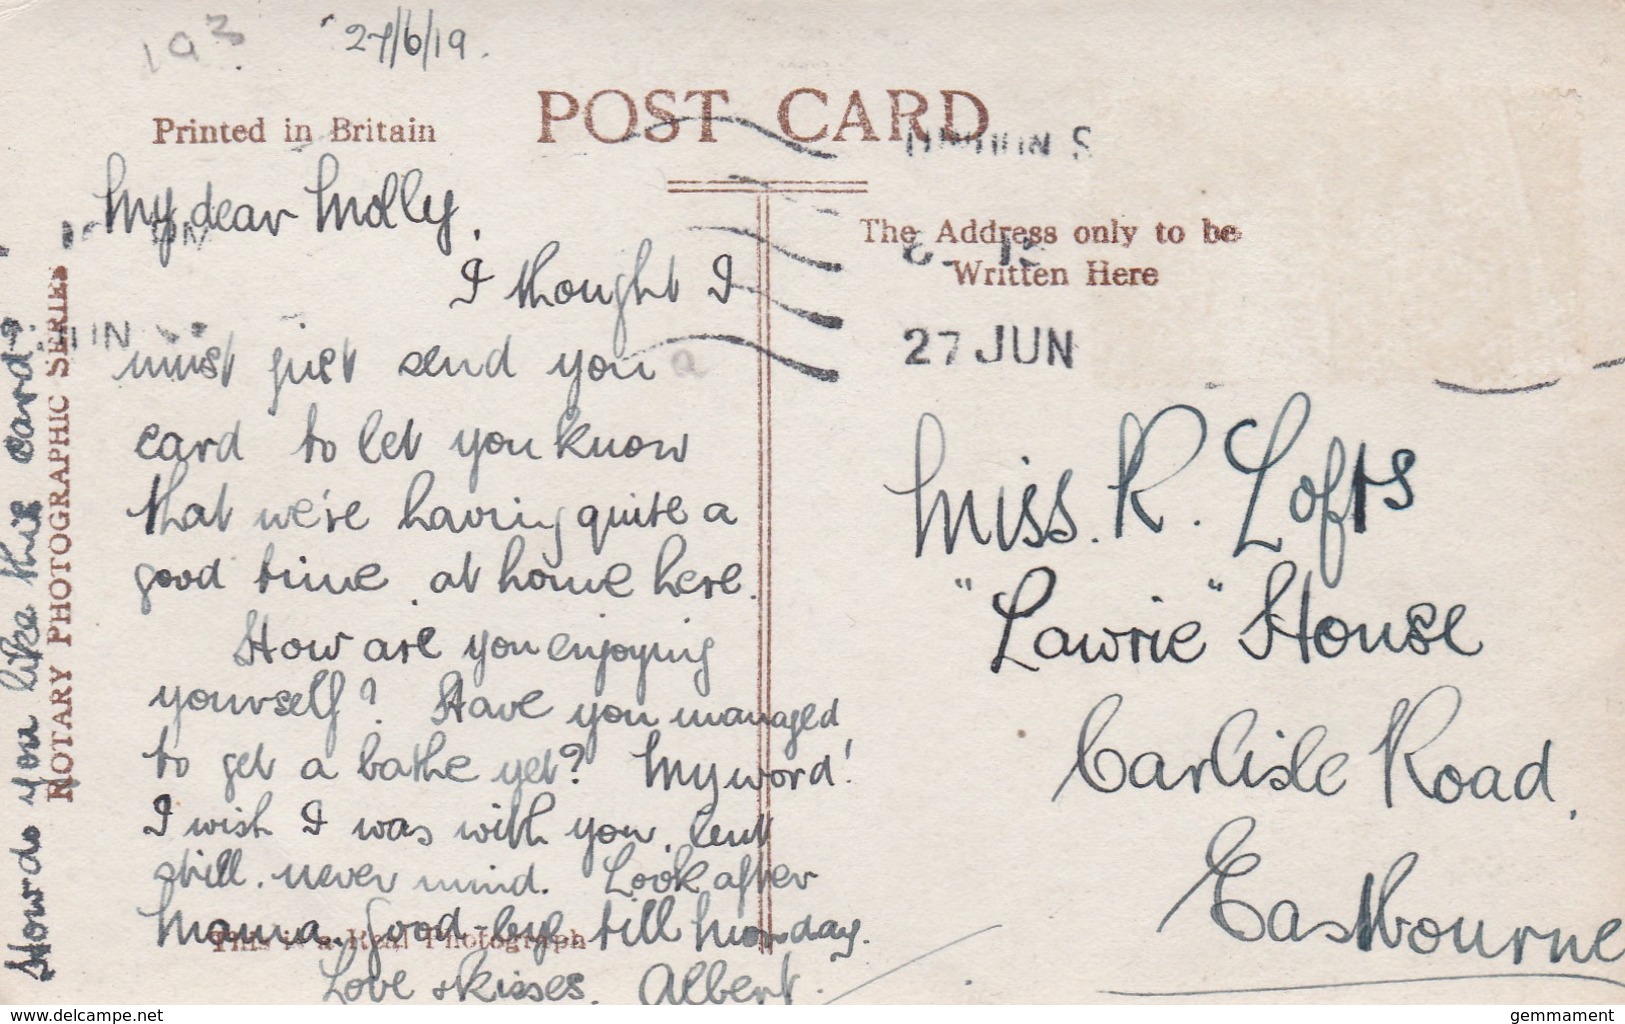 193
27/6/19.
POST CARD
Printed in Britain
My dear Molly,
I thought I
must just send you a
card to let you know
that we're having quite a
good time at home here.
How are you enjoying
yourself? Have you managed
to get a bathe yet? My word!
I wish I was with you, but
still, never mind. Look after
Mama. Good-bye till Monday.
Love & kisses. Albert.
This is a Real Photograph
How do you like this card?
ROTARY PHOTOGRAPHIC SERIES
The Address only to be
Written Here
27 JUN
Miss. R. Lofts
"Lawrie" House
Carlisle Road,
Eastbourne
www.delcampe.net
gemmament